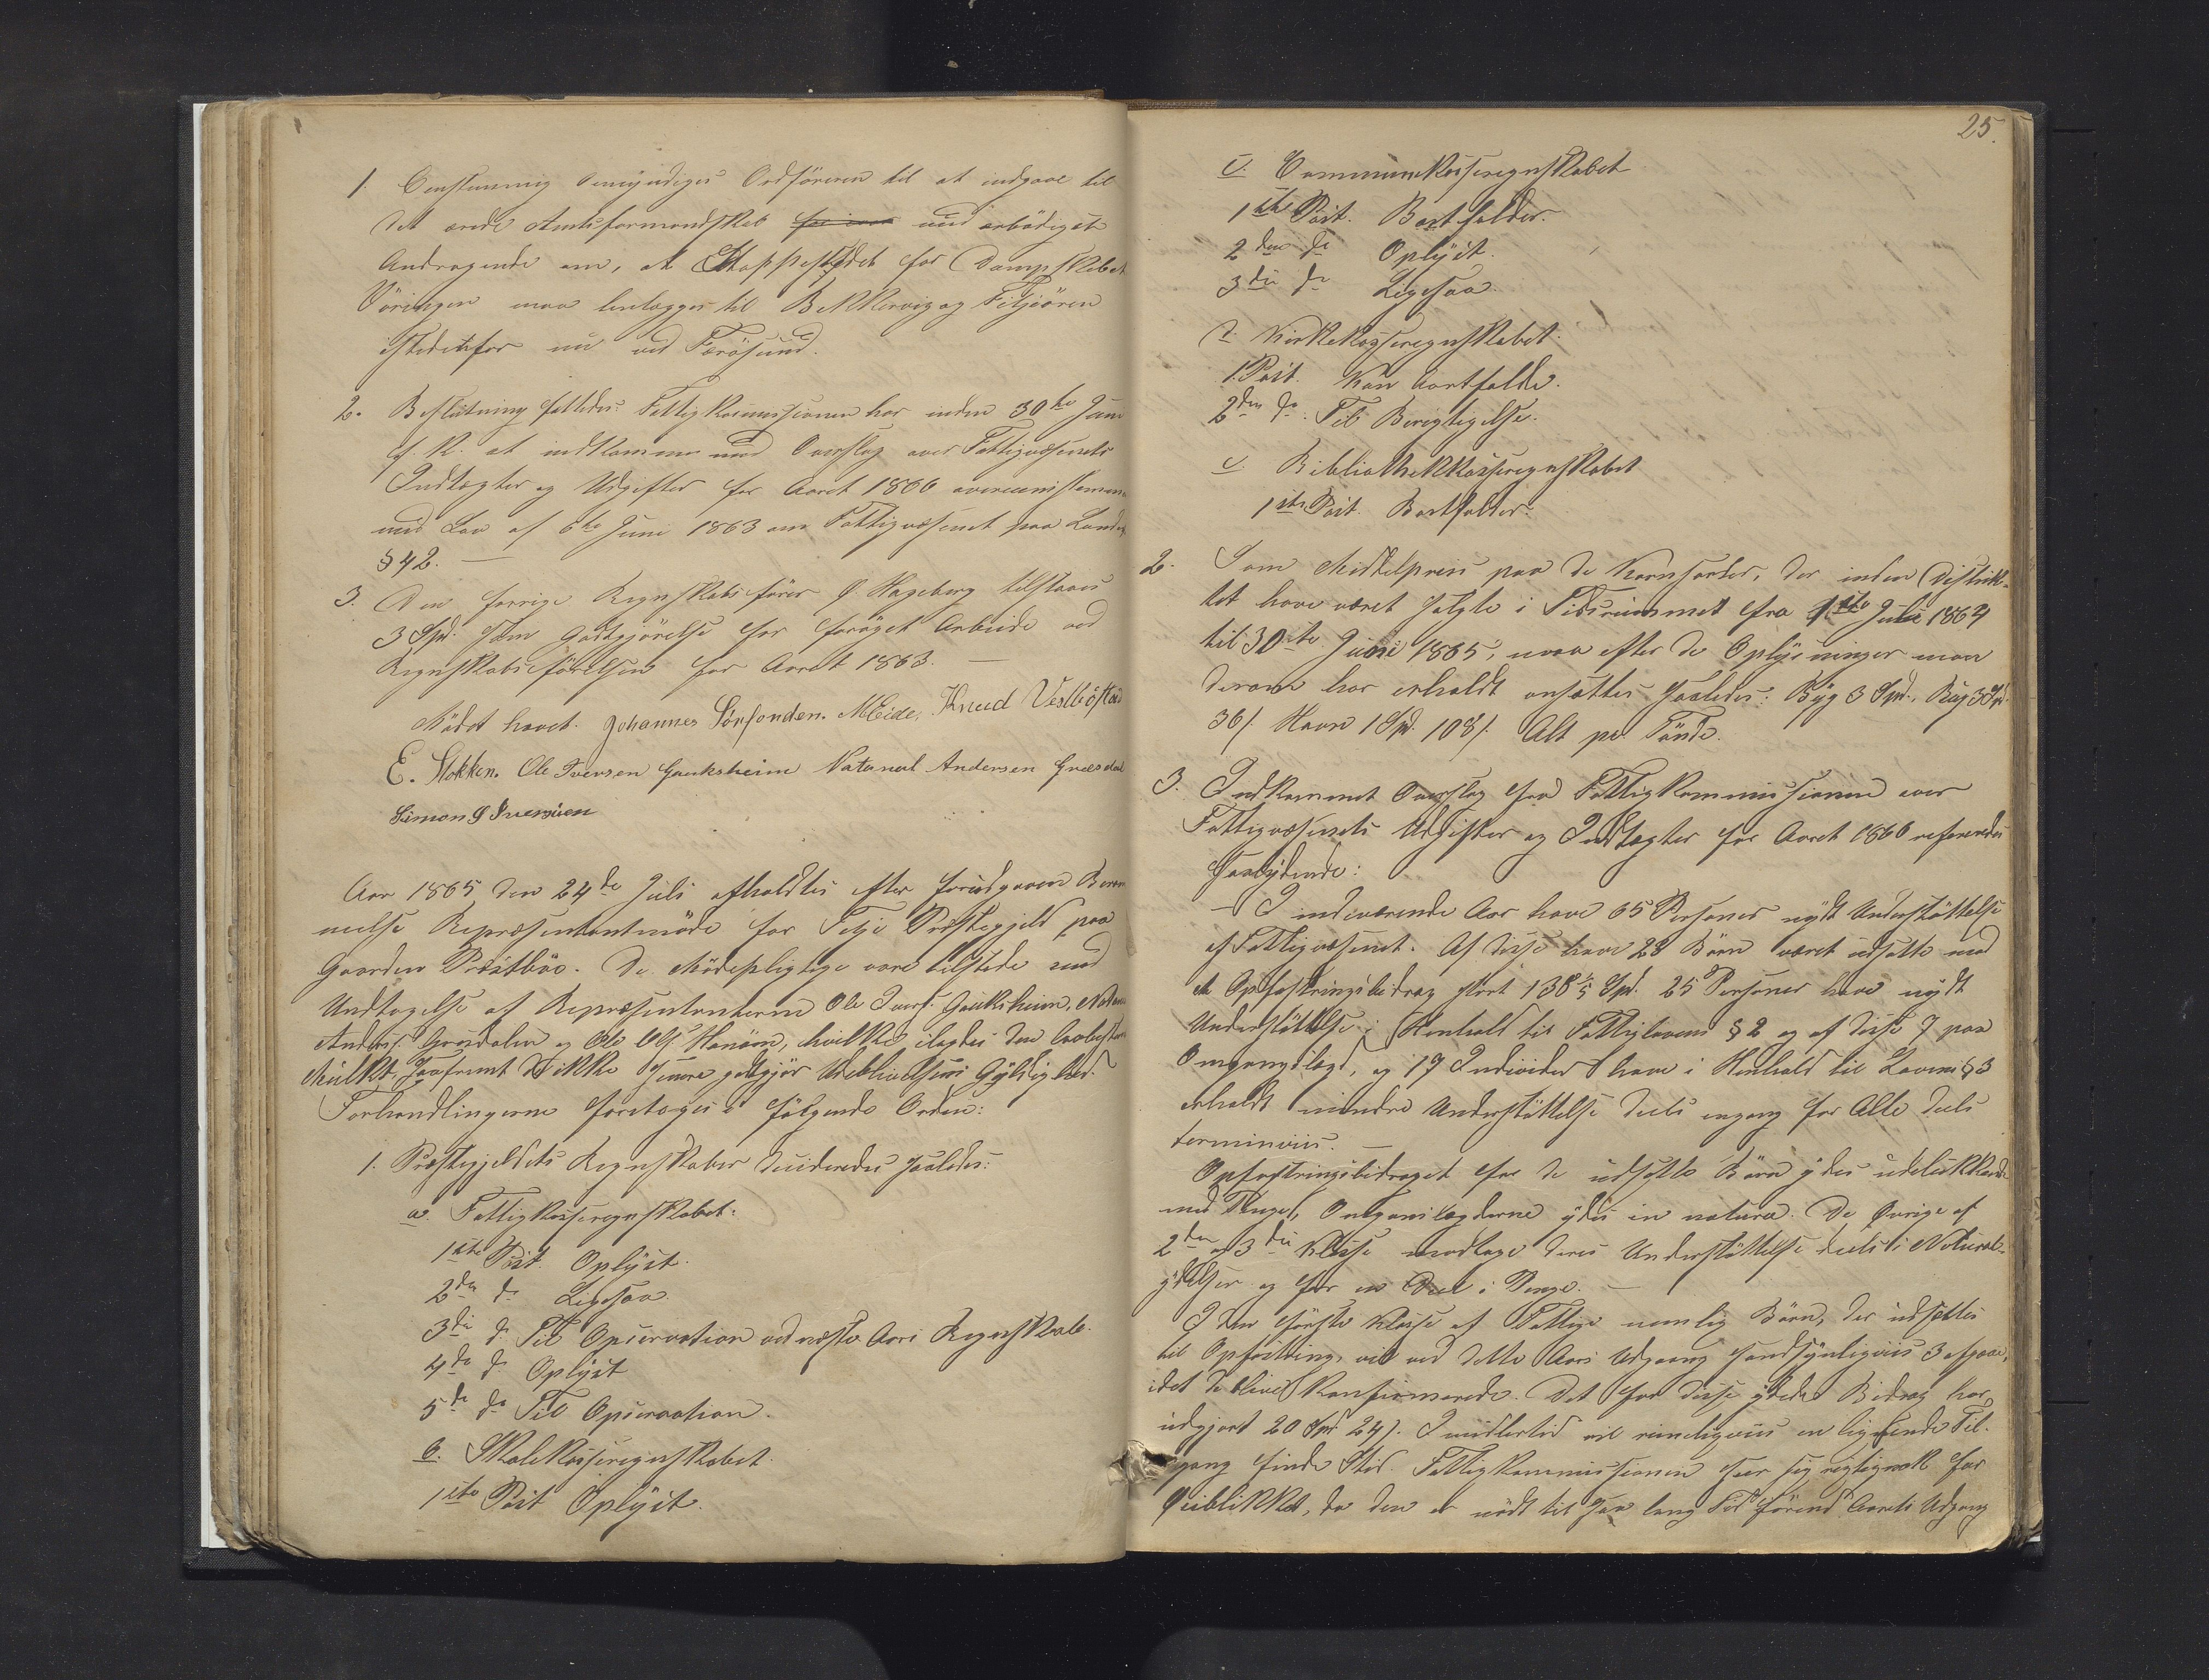 1. Eenstemmig bemyndiges Ordføreren til at indgaae til
det ærede Amtsformandskab for inde med ærbødigst
Andragende om, at Stoppestedet for Dampskibet
Vøringen maa henlægges til Bekkervig og Fitjeøren
istedetfor nu ved Forøsund.
2. Beslutning fattedes: Fattigkommissionen har inden 30te Juni
f. K. at indkomme med Overslag over Fattigvæsenets
Indtægter og Udgifter for Aaret 1866 overeensstemmen
med Lov af 6te Juni 1863 om Fattigvæsenet paa Landet
§ 42. —
3. Den forrige Regnskabsfører Hageberg tilstaaes
3 Spd. som Godtgjørelse for forøget Arbeide ved
Regnskabsførelsen for Aaret 1863. —
Mødet hævet. Johannes Sørfonden. MEide. Knud Vestbøstad
E. Stokken. Ole Iversen Gauksheim Natanael Andersen Græsdal
Simon S Simonsen
Aar 1865 den 24de Juli afholdtes efter forudgaaen Beram
melse Repræsentantmøde for Fitje Præstegjeld paa
Gaarden Præstbøe. De Mødepligtige vare tilstede med
Undtagelse af Repræsentanterne Ole Ivers. Gauksheim, Natan
Anders. Græsdalen og Ole Hanøen, hvilke ilagdes den lovbestemte
Mulkt, saafremt de ikke senere godtgjør Udeblivelsens Gyldighed.
Forhandlingerne foretoges i følgende Orden:
1. Præstegjeldets Regnskaber decideredes saaledes:
a. Fattigkasseregnskabet:
1ste Post. Oplyst.
2den do Ligesaa.
3die do Til Observation ved næste Aars Regnskab.
4de do Oplyst
5te do Til Observation.
b. Skolekasseregnskabet.
1ste Post Oplyst.
25.
c. Communekasseregnskabet
1ste Post. Bortfalder.
2den do Oplyst.
3die do Ligesaa.
d. Kirkekasseregnskabet.
1. Post. Kan bortfalde.
2den do. Til Berigtigelse.
e. Bibliothekkasseregnskabet
1ste Post. Bortfalder.
2. Som Middelpriis paa de Kornsorter, der inden Distrik-
tet have været solgte i Tidsrummet fra 1ste Juli 1864
til 30te Juni 1865, maa efter de Oplysninger man
derom har erholdt ansættes saaledes: Byg 3 Spd., Rug 3 Spd.
36 s. Havre 1 Spd. 108 s. Alt pr. Tønde.
3. Indkommet Overslag fra Fattigkommissionen over
Fattigvæsenets Udgifter og Indtægter for Aaret 1866 refereredes
saalydende:
— I indeværende Aar have 65 Personer nydt Understøttelse
af Fattigvæsenet. Af disse have 23 Børn været udsatte med
et Opfostringsbidrag stort 138 1/5 Spd. 25 Personer have nydt
Understøttelse i Henhold til Fattiglovens § 2 og af disse 7 paa
Omgangslægd, og 17 Individer have i Henhold til Lovens § 3
erholdt mindre Understøttelse deels engang for Alle deels
terminviis. —
Opfostringsbidraget for de udsatte Børn ydes udelukkende
med Penge, Omgangslægderne ydes in natura. De Øvrige af
2den og 3die Klasse modtage deres Understøttelse deels i Natural-
ydelser og for en Deel i Penge. —
I den første Klasse af Fattige nemlig Børn, der udsættes
til Opfostring, vil ved dette Aars Udgang sandsynligviis 3 afgaae,
idet de blive konfirmerede. Det for disse ydede Bidrag har
udgjort 20 Spd 24 s. Imidlertid vil rimeligviis en lignende Til-
gang finde Sted. Fattigkommissionen seer sig rigtignok for
Øieblikket, da den er nødt til saa lang Tid førend Aarets Udgang